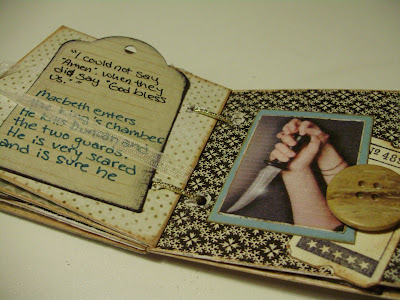 "I could not say
"Amen" when they
did say "God bless
us."
Macbeth enters
chamber
He kills Duncan and
the two guards.
He is very scared
and is sure he
No 48